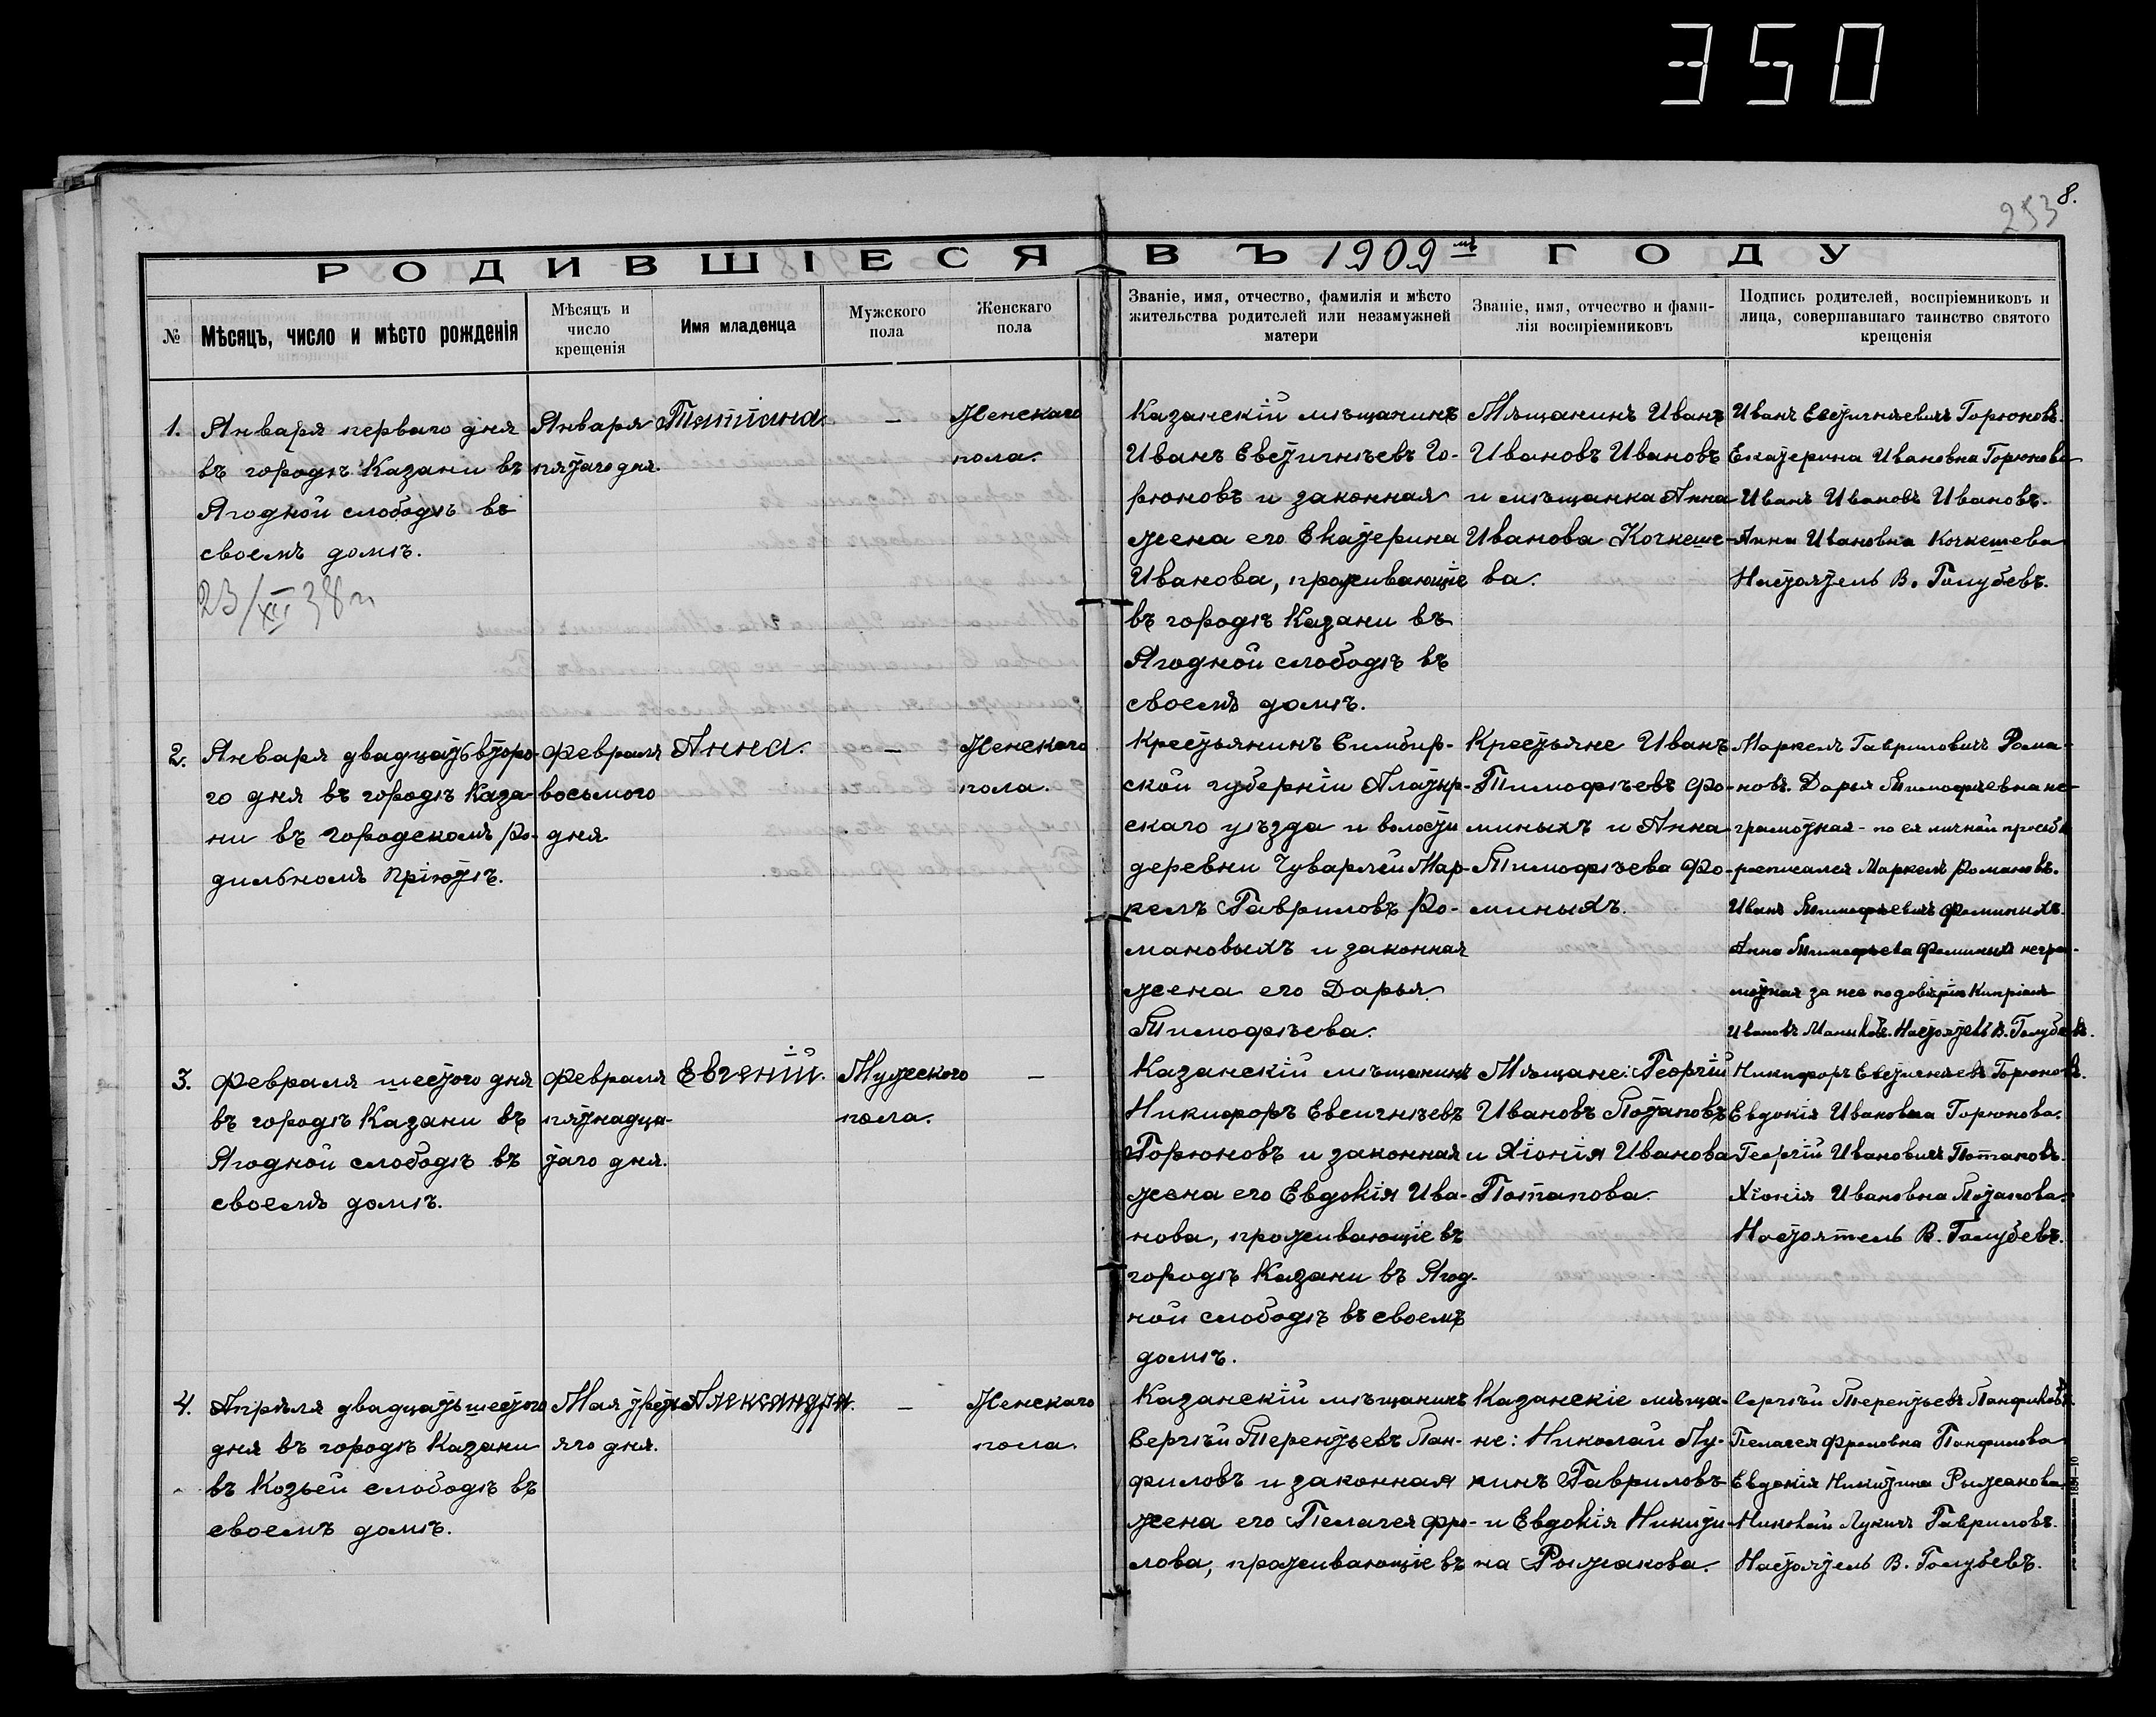 350
253
8.
РОДИВШІЕСЯ ВЪ 1909мъ ГОДУ
№
Мѣсяцъ, число и мѣсто рожденія
Мѣсяцъ и
число
крещенія
Имя младенца
Мужского
пола
Женскаго
пола
Званіе, имя, отчество, фамилія и мѣсто
жительства родителей или незамужней
матери
Званіе, имя, отчество и фами-
лія воспріемниковъ
Подпись родителей, воспріемниковъ и
лица, совершавшаго таинство святого
крещенія
1.
Января перваго дня
въ городѣ Казани въ
Ягодной слободѣ въ
своемъ домѣ.
23/XII 38 г
Января
пятаго дня.
Татіана
—
Женскаго
пола.
Казанскій мѣщанинъ
Иванъ Евстигнѣевъ Го-
рюновъ и законная
жена его Екатерина
Иванова, проживающіе
въ городѣ Казани въ
Ягодной слободѣ въ
своемъ домѣ.
Мѣщанинъ Иванъ
Ивановъ Ивановъ
и мѣщанка Анна
Иванова Кочкеше-
ва.
Иванъ Евстигнѣевичъ Горюновъ.
Екатерина Ивановна Горюнова
Иванъ Ивановъ Ивановъ.
Анна Ивановна Кочкешева
Настоятель В. Голубевъ.
2.
Января двадцать второ-
го дня въ городѣ Каза-
ни въ городскомъ Ро-
дильномъ пріютѣ.
Февраля
восьмого
дня.
Анна.
—
Женскаго
пола.
Крестьянинъ Симбир-
ской губерніи Алатыр-
скаго уѣзда и волости
деревни Чуварлей Мар-
келъ Гавриловъ Ро-
мановыхъ и законная
жена его Дарья
Тимофѣева.
Крестьяне Иванъ
Тимофѣевъ Фо-
миныхъ и Анна
Тимофѣева Фо-
миныхъ.
Маркелъ Гавриловичъ Рома-
новъ. Дарья Тимофѣевна не-
грамотная - по ея личной просьбѣ
росписался Маркелъ Романовъ.
Иванъ Тимофѣевичъ Фоминыхъ.
Анна Тимофѣева Фоминыхъ негра-
мотная за нее по довѣрію Кипріанъ
Ивановъ Настоятель В. Голубевъ.
3.
Февраля шестого дня
въ городѣ Казани въ
Ягодной слободѣ въ
своемъ домѣ.
Февраля
пятнадца-
таго дня.
Евгеній.
Мужского
пола.
—
Казанскій мѣщанинъ
Никифоръ Евсигнѣевъ
Горюновъ и законная
жена его Евдокія Ива-
нова, проживающіе въ
городѣ Казани въ Ягод-
ной слободѣ въ своемъ
домѣ.
Мѣщане: Георгій
Ивановъ Потаповъ
и Хіонія Иванова
Потапова.
Никифоръ Евстигнѣевъ Горюновъ.
Евдокія Ивановна Горюнова.
Георгій Ивановичъ Потаповъ.
Хіонія Ивановна Потапова.
Настоятель В. Голубевъ.
4.
Апрѣля двадцать шестого
дня въ городѣ Казани
въ Козьей слободѣ въ
своемъ домѣ.
Мая треть-
яго дня.
Александра.
—
Женскаго
пола.
Казанскій мѣщанинъ
Сергѣй Терентьевъ Пан-
филовъ и законная
жена его Пелагея Фро-
лова, проживающіе въ
Казанскіе мѣща-
не: Николай Лу-
кинъ Гавриловъ
и Евдокія Никити-
на Рыжакова.
Сергѣй Терентьевъ Панфиловъ.
Пелагея Фроловна Панфилова
Евдокія Никитина Рыжакова
Николай Лукичъ Гавриловъ.
Настоятель В. Голубевъ.